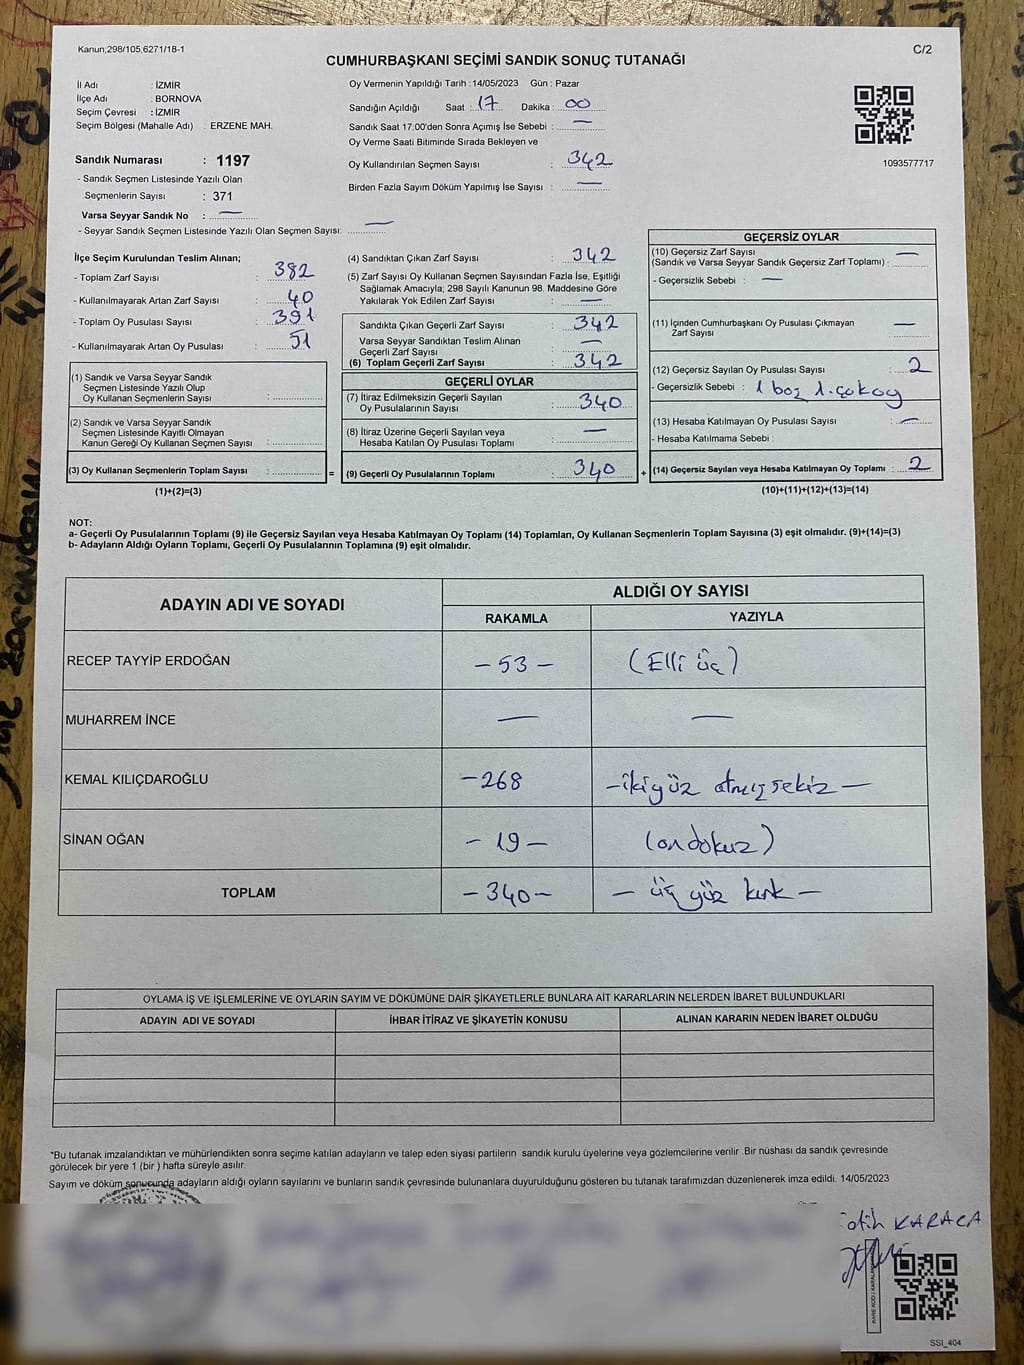 Kanun;298/105,6271/18-1
C/2
CUMHURBAŞKANI SEÇİMİ SANDIK SONUÇ TUTANAĞI
İl Adı : İZMİR
İlçe Adı : BORNOVA
Seçim Çevresi : İZMİR
Seçim Bölgesi (Mahalle Adı) : ERZENE MAH.
Sandık Numarası : 1197
- Sandık Seçmen Listesinde Yazılı Olan
Seçmenlerin Sayısı : 371
Varsa Seyyar Sandık No : —
- Seyyar Sandık Seçmen Listesinde Yazılı Olan Seçmen Sayısı: —
Oy Vermenin Yapıldığı Tarih : 14/05/2023 Gün : Pazar
Sandığın Açıldığı Saat : 17 Dakika : 00
Sandık Saat 17:00'den Sonra Açımış İse Sebebi : —
Oy Verme Saati Bitiminde Sırada Bekleyen ve
Oy Kullandırılan Seçmen Sayısı : 342
Birden Fazla Sayım Döküm Yapılmış İse Sayısı : —
1093577717
İlçe Seçim Kurulundan Teslim Alınan;
- Toplam Zarf Sayısı : 382
- Kullanılmayarak Artan Zarf Sayısı : 40
- Toplam Oy Pusulası Sayısı : 391
- Kullanılmayarak Artan Oy Pusulası : 51
(1) Sandık ve Varsa Seyyar Sandık
Seçmen Listesinde Yazılı Olup
Oy Kullanan Seçmenlerin Sayısı :
(2) Sandık ve Varsa Seyyar Sandık
Seçmen Listesinde Kayıtlı Olmayan
Kanun Gereği Oy Kullanan Seçmen Sayısı :
(3) Oy Kullanan Seçmenlerin Toplam Sayısı :
(1)+(2)=(3)
(4) Sandıktan Çıkan Zarf Sayısı : 342
(5) Zarf Sayısı Oy Kullanan Seçmen Sayısından Fazla İse, Eşitliği
Sağlamak Amacıyla; 298 Sayılı Kanunun 98. Maddesine Göre
Yakılarak Yok Edilen Zarf Sayısı : —
Sandıkta Çıkan Geçerli Zarf Sayısı : 342
Varsa Seyyar Sandıktan Teslim Alınan
Geçerli Zarf Sayısı : —
(6) Toplam Geçerli Zarf Sayısı : 342
GEÇERLİ OYLAR
(7) İtiraz Edilmeksizin Geçerli Sayılan
Oy Pusulalarının Sayısı : 340
(8) İtiraz Üzerine Geçerli Sayılan veya
Hesaba Katılan Oy Pusulası Toplamı : —
= (9) Geçerli Oy Pusulalarının Toplamı : 340 +
GEÇERSİZ OYLAR
(10) Geçersiz Zarf Sayısı
(Sandık ve Varsa Seyyar Sandık Geçersiz Zarf Toplamı) : —
- Geçersizlik Sebebi : —
(11) İçinden Cumhurbaşkanı Oy Pusulası Çıkmayan
Zarf Sayısı : —
(12) Geçersiz Sayılan Oy Pusulası Sayısı : 2
- Geçersizlik Sebebi : 1 boş 1.çokoy
(13) Hesaba Katılmayan Oy Pusulası Sayısı : —
- Hesaba Katılmama Sebebi :
(14) Geçersiz Sayılan veya Hesaba Katılmayan Oy Toplamı : 2
(10)+(11)+(12)+(13)=(14)
NOT:
a- Geçerli Oy Pusulalarının Toplamı (9) ile Geçersiz Sayılan veya Hesaba Katılmayan Oy Toplamı (14) Toplamları, Oy Kullanan Seçmenlerin Toplam Sayısına (3) eşit olmalıdır. (9)+(14)=(3)
b- Adayların Aldığı Oyların Toplamı, Geçerli Oy Pusulalarının Toplamına (9) eşit olmalıdır.
ADAYIN ADI VE SOYADI ALDIĞI OY SAYISI
RAKAMLA YAZIYLA
RECEP TAYYİP ERDOĞAN -53- (Elli üç)
MUHARREM İNCE — —
KEMAL KILIÇDAROĞLU -268 -ikiyüz atmışsekiz-
SİNAN OĞAN -19- (on dokuz)
TOPLAM -340- - üç yüz kırk -
OYLAMA İŞ VE İŞLEMLERİNE VE OYLARIN SAYIM VE DÖKÜMÜNE DAİR ŞİKAYETLERLE BUNLARA AİT KARARLARIN NELERDEN İBARET BULUNDUKLARI
ADAYIN ADI VE SOYADI İHBAR İTİRAZ VE ŞİKAYETİN KONUSU ALINAN KARARIN NEDEN İBARET OLDUĞU
*Bu tutanak imzalandıktan ve mühürlendikten sonra seçime katılan adayların ve talep eden siyasi partilerin sandık kurulu üyelerine veya gözlemcilerine verilir .Bir nüshası da sandık çevresinde
görülecek bir yere 1 (bir ) hafta süreyle asılır.
Sayım ve döküm sonucunda adayların aldığı oyların sayılarını ve bunların sandık çevresinde bulunanlara duyurulduğunu gösteren bu tutanak tarafımızdan düzenlenerek imza edildi. 14/05/2023
KARACA
SSİ_404